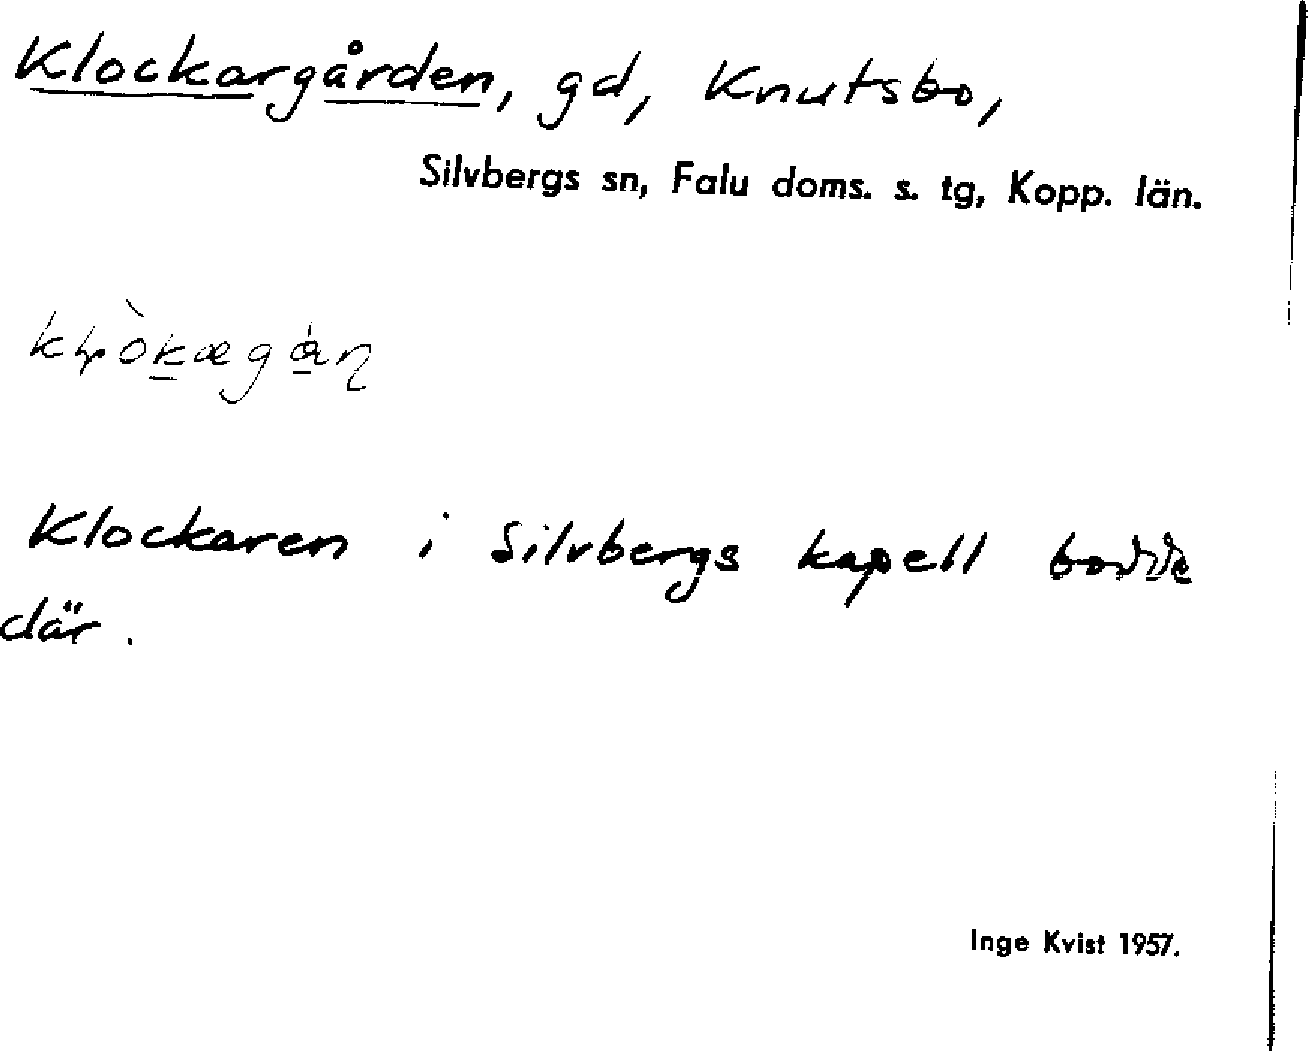 Klockargården, gd, Knutsbo,
Silvbergs sn, Falu doms. s. tg, Kopp. län.
Klockaren i Silvbergs kapell bodde
där.
Inge Kvist 1957.